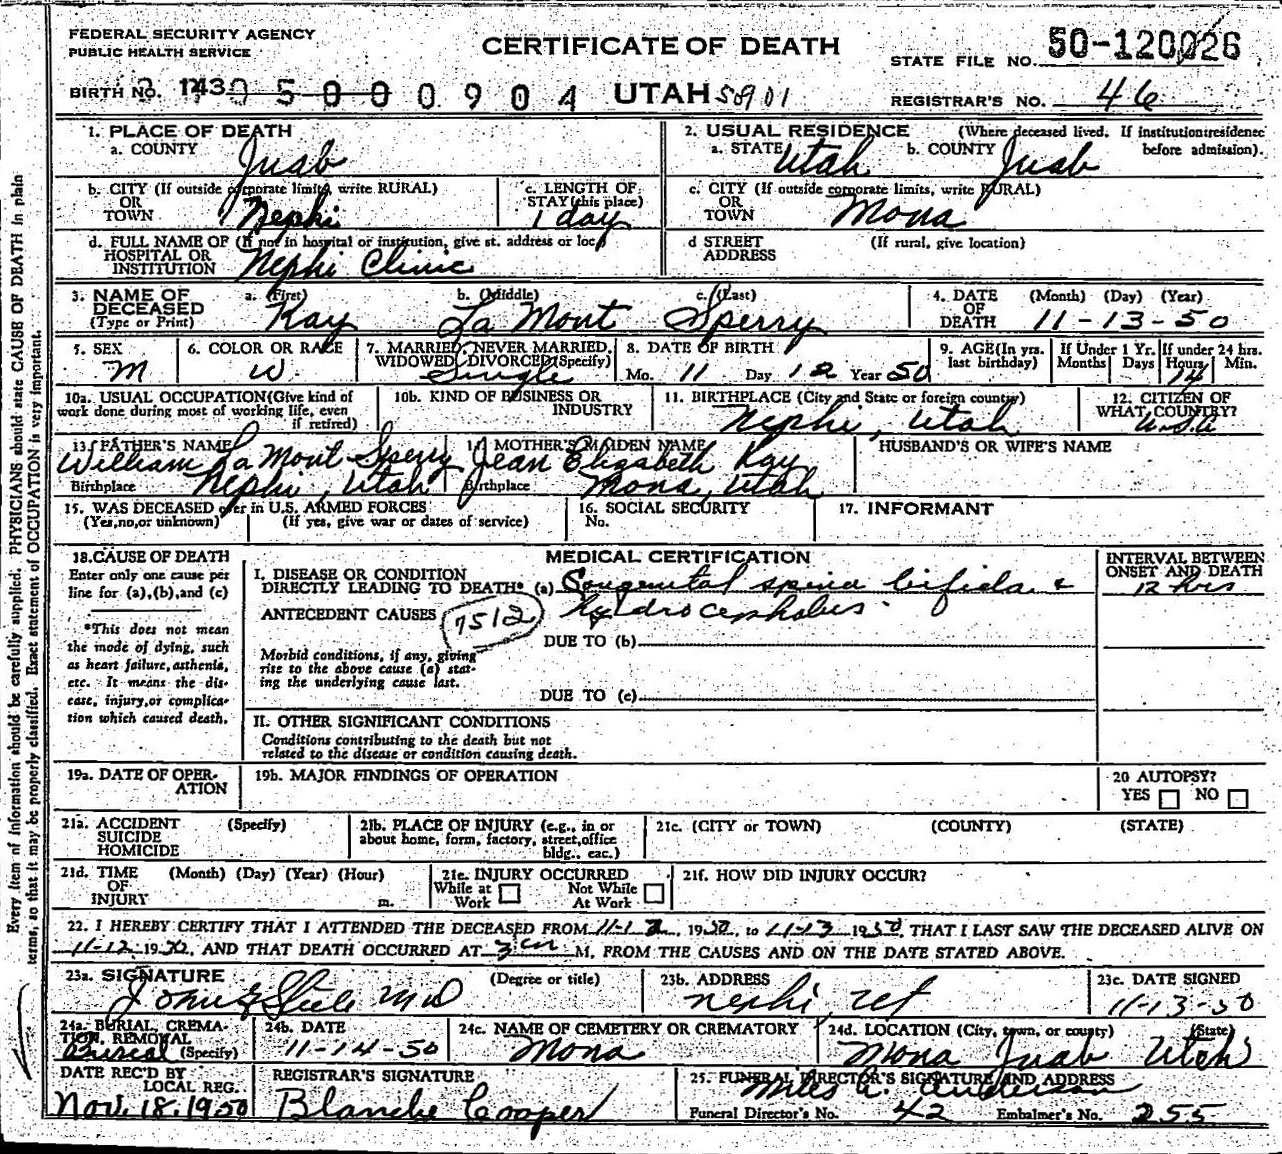 FEDERAL SECURITY AGENCY
PUBLIC HEALTH SERVICE
CERTIFICATE OF DEATH
STATE FILE NO. 50-120026
BIRTH NO. 143 5000904 UTAH 58901
REGISTRAR'S NO. 46
1. PLACE OF DEATH
a. COUNTY Juab
2. USUAL RESIDENCE (Where deceased lived. If institution: residence before admission).
a. STATE Utah b. COUNTY Juab
b. CITY (If outside corporate limits, write RURAL) OR TOWN Nephi
c. LENGTH OF STAY (this place) 1 day
c. CITY (If outside corporate limits, write RURAL) OR TOWN Mona
d. FULL NAME OF (If not in hospital or institution, give st. address or loc.) HOSPITAL OR INSTITUTION Nephi Clinic
d STREET ADDRESS (If rural, give location)
3. NAME OF DECEASED (Type or Print) a. (First) Kay b. (Middle) La Mont c. (Last) Sperry
4. DATE OF DEATH (Month) (Day) (Year) 11-13-50
5. SEX M
6. COLOR OR RACE W.
7. MARRIED, NEVER MARRIED, WIDOWED, DIVORCED (Specify) Single
8. DATE OF BIRTH Mo. 11 Day 12 Year 50
9. AGE (In yrs. last birthday) If Under 1 Yr. Months Days If under 24 hrs. Hours 14 Min.
10a. USUAL OCCUPATION (Give kind of work done during most of working life, even if retired)
10b. KIND OF BUSINESS OR INDUSTRY
11. BIRTHPLACE (City and State or foreign country) Nephi, Utah
12. CITIZEN OF WHAT COUNTRY? U.S.A
13. FATHER'S NAME William La Mont Sperry
Birthplace Nephi, Utah
14. MOTHER'S MAIDEN NAME Jean Elizabeth Kay
Birthplace Mona, Utah
HUSBAND'S OR WIFE'S NAME
15. WAS DECEASED ever in U.S. ARMED FORCES
(Yes, no, or unknown) (If yes, give war or dates of service)
16. SOCIAL SECURITY No.
17. INFORMANT
18. CAUSE OF DEATH
Enter only one cause per line for (a), (b), and (c)
*This does not mean the mode of dying, such as heart failure, asthenia, etc. It means the disease, injury, or complication which caused death.
MEDICAL CERTIFICATION
INTERVAL BETWEEN ONSET AND DEATH
I. DISEASE OR CONDITION DIRECTLY LEADING TO DEATH* (a) Congenital spina bifida & 12 hrs
hydrocephalus.
ANTECEDENT CAUSES 7512
DUE TO (b)
Morbid conditions, if any, giving rise to the above cause (a) stating the underlying cause last.
DUE TO (c)
II. OTHER SIGNIFICANT CONDITIONS
Conditions contributing to the death but not related to the disease or condition causing death.
19a. DATE OF OPERATION
19b. MAJOR FINDINGS OF OPERATION
20 AUTOPSY?
YES NO
21a. ACCIDENT SUICIDE HOMICIDE (Specify)
21b. PLACE OF INJURY (e.g., in or about home, form, factory, street, office bldg., eac.)
21c. (CITY or TOWN) (COUNTY) (STATE)
21d. TIME OF INJURY (Month) (Day) (Year) (Hour) m.
21e. INJURY OCCURRED
While at Work Not While At Work
21f. HOW DID INJURY OCCUR?
22. I HEREBY CERTIFY THAT I ATTENDED THE DECEASED FROM 11-12, 1950, to 11-13 1950, THAT I LAST SAW THE DECEASED ALIVE ON
11-12, 1950, AND THAT DEATH OCCURRED AT 3 am M, FROM THE CAUSES AND ON THE DATE STATED ABOVE.
23a. SIGNATURE (Degree or title) Steele MD
23b. ADDRESS Nephi, Ut
23c. DATE SIGNED 11-13-50
24a. BURIAL, CREMATION, REMOVAL (Specify) Burial
24b. DATE 11-14-50
24c. NAME OF CEMETERY OR CREMATORY Mona
24d. LOCATION (City, town, or county) (State) Mona Juab Utah
DATE REC'D BY LOCAL REG. Nov. 18, 1950
REGISTRAR'S SIGNATURE Blanche Cooper
25. FUNERAL DIRECTOR'S SIGNATURE AND ADDRESS Miles A. Anderson
Funeral Director's No. 42 Embalmer's No. 255
Every item of information should be carefully supplied. PHYSICIANS should state CAUSE OF DEATH in plain
terms, so that it may be properly classified. Exact statement of OCCUPATION is very important.